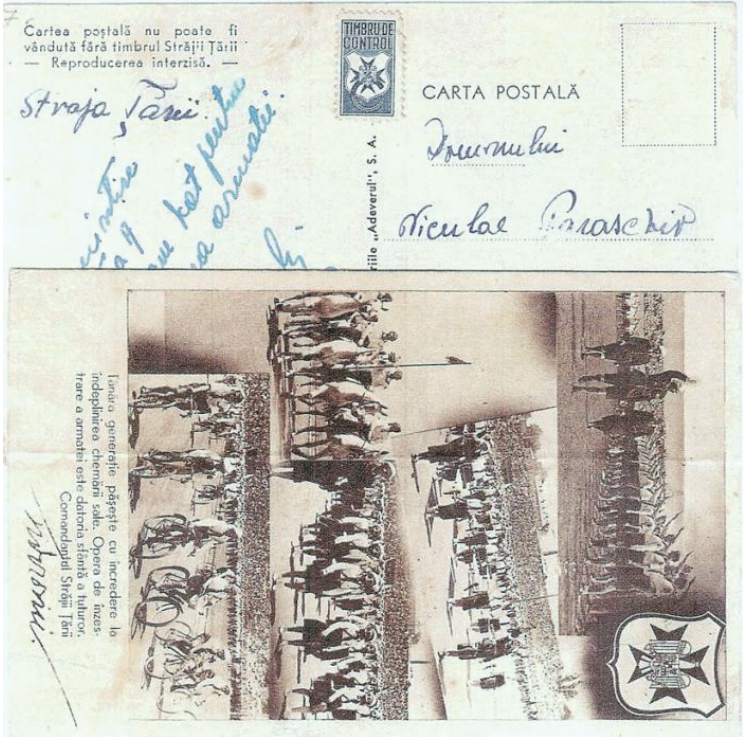 Cartea poștală nu poate fi
vândută fără timbrul Străjii Țării
— Reproducerea interzisă. —
Straja Țării
TIMBRU DE
CONTROL
CARTA POSTALĂ
Domnului
Niculae Paraschiv
pentru
armatei.
riile „Adeverul”, S. A.
Tânăra generație pășește cu încredere la
îndeplinirea chemării sale. Opera de înzes-
trare a armatei este datoria sfântă a tuturor.
Comandantul Străjii Țării